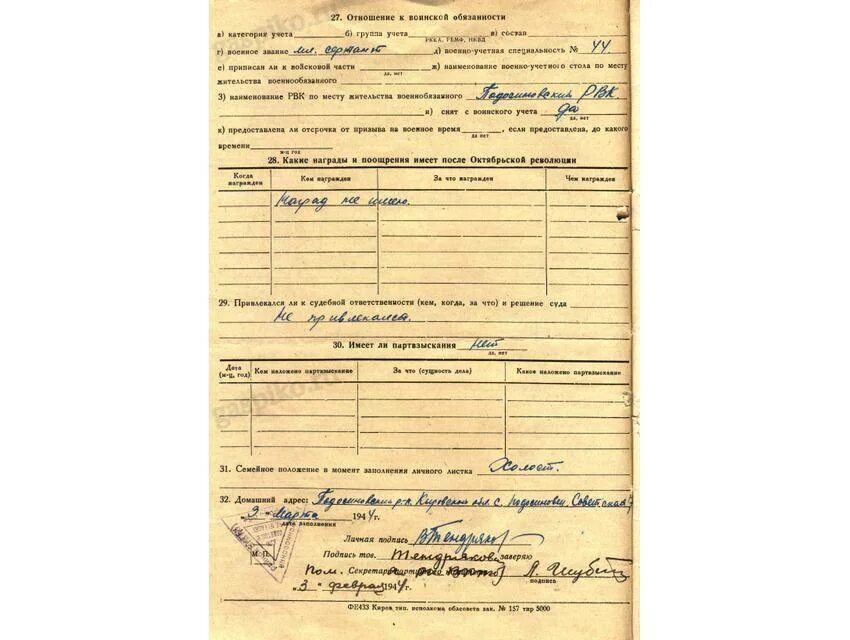 27. Отношение к воинской обязанности
а) категория учета б) группа учета в) состав
РККА, РКМФ, НКВД
г) военное звание мл. сержант д) военно-учетная специальность № 44
е) приписан ли к войсковой части ж) наименование военно-учетного стола по месту
да, нет
жительства военнообязанного
З) наименование РВК по месту жительства военнобязанного Подосиновский РВК.
и) снят с воинского учета да
да, нет
к) предоставлена ли отсрочка от призыва на военное время , если предоставлена, до какого
да нет
времени
м-ц год
28. Какие награды и поощрения имеет после Октябрьской революции
Когда награжден Кем награжден За что награжден Чем награжден
Наград не имею.
29. Привлекался ли к судебной ответственности (кем, когда, за что) и решение суда
Не привлекался.
30. Имеет ли партвзыскания нет
да, нет
Дата (м-ц, год) Кем наложено партвзыскание За что (сущность дела) Какое наложено партвзыскание
gaspiko.ru
31. Семейное положение в момент заполнения личного листка Холост.
32. Домашний адрес: Подосиновский р-н Кировской обл. с. Подосиновец Советская
"3" Марта 1944г.
дата заполнения
Личная подпись ВТендряков
М. П.
Подпись тов. Тендрякова заверяю
пом. Секретарь
подпись
"3" февраля 1944г.
ФЕ433 Киров, тип. исполкома облсовета зак. № 157 тир 5000